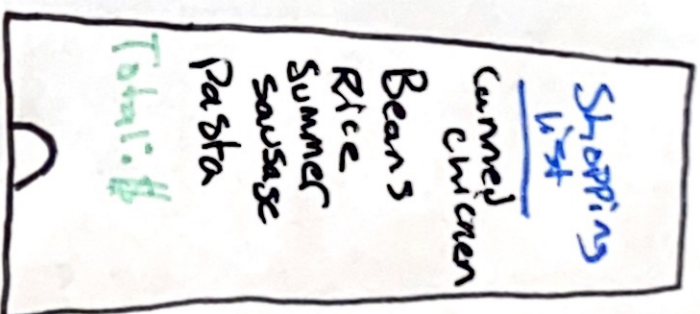 Shopping
List
Canned
Chicken
Beans
Rice
Summer
Sausage
Pasta
Total: $